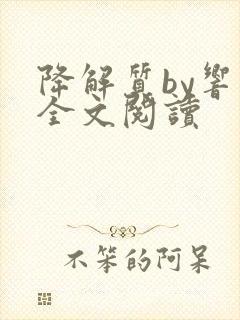 降解質by響
全文閱讀
不笨的阿呆